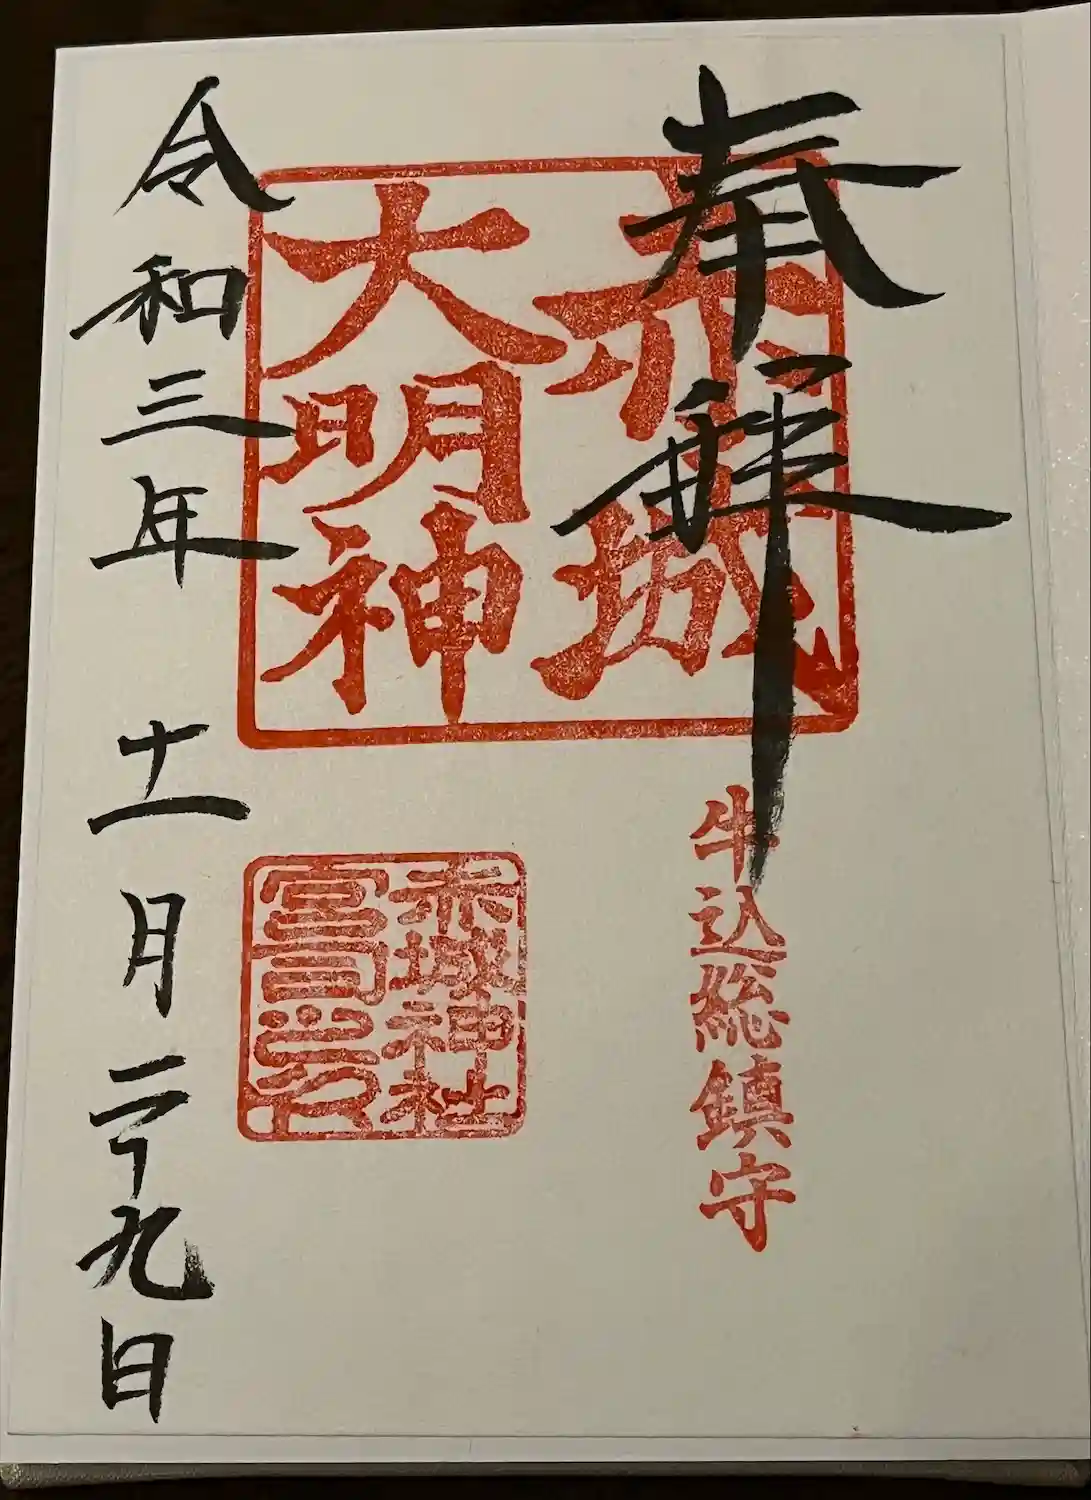 奉拝
赤城
大明神
牛込総鎮守
赤城神社
宮司之印
令和三年十一月二十九日